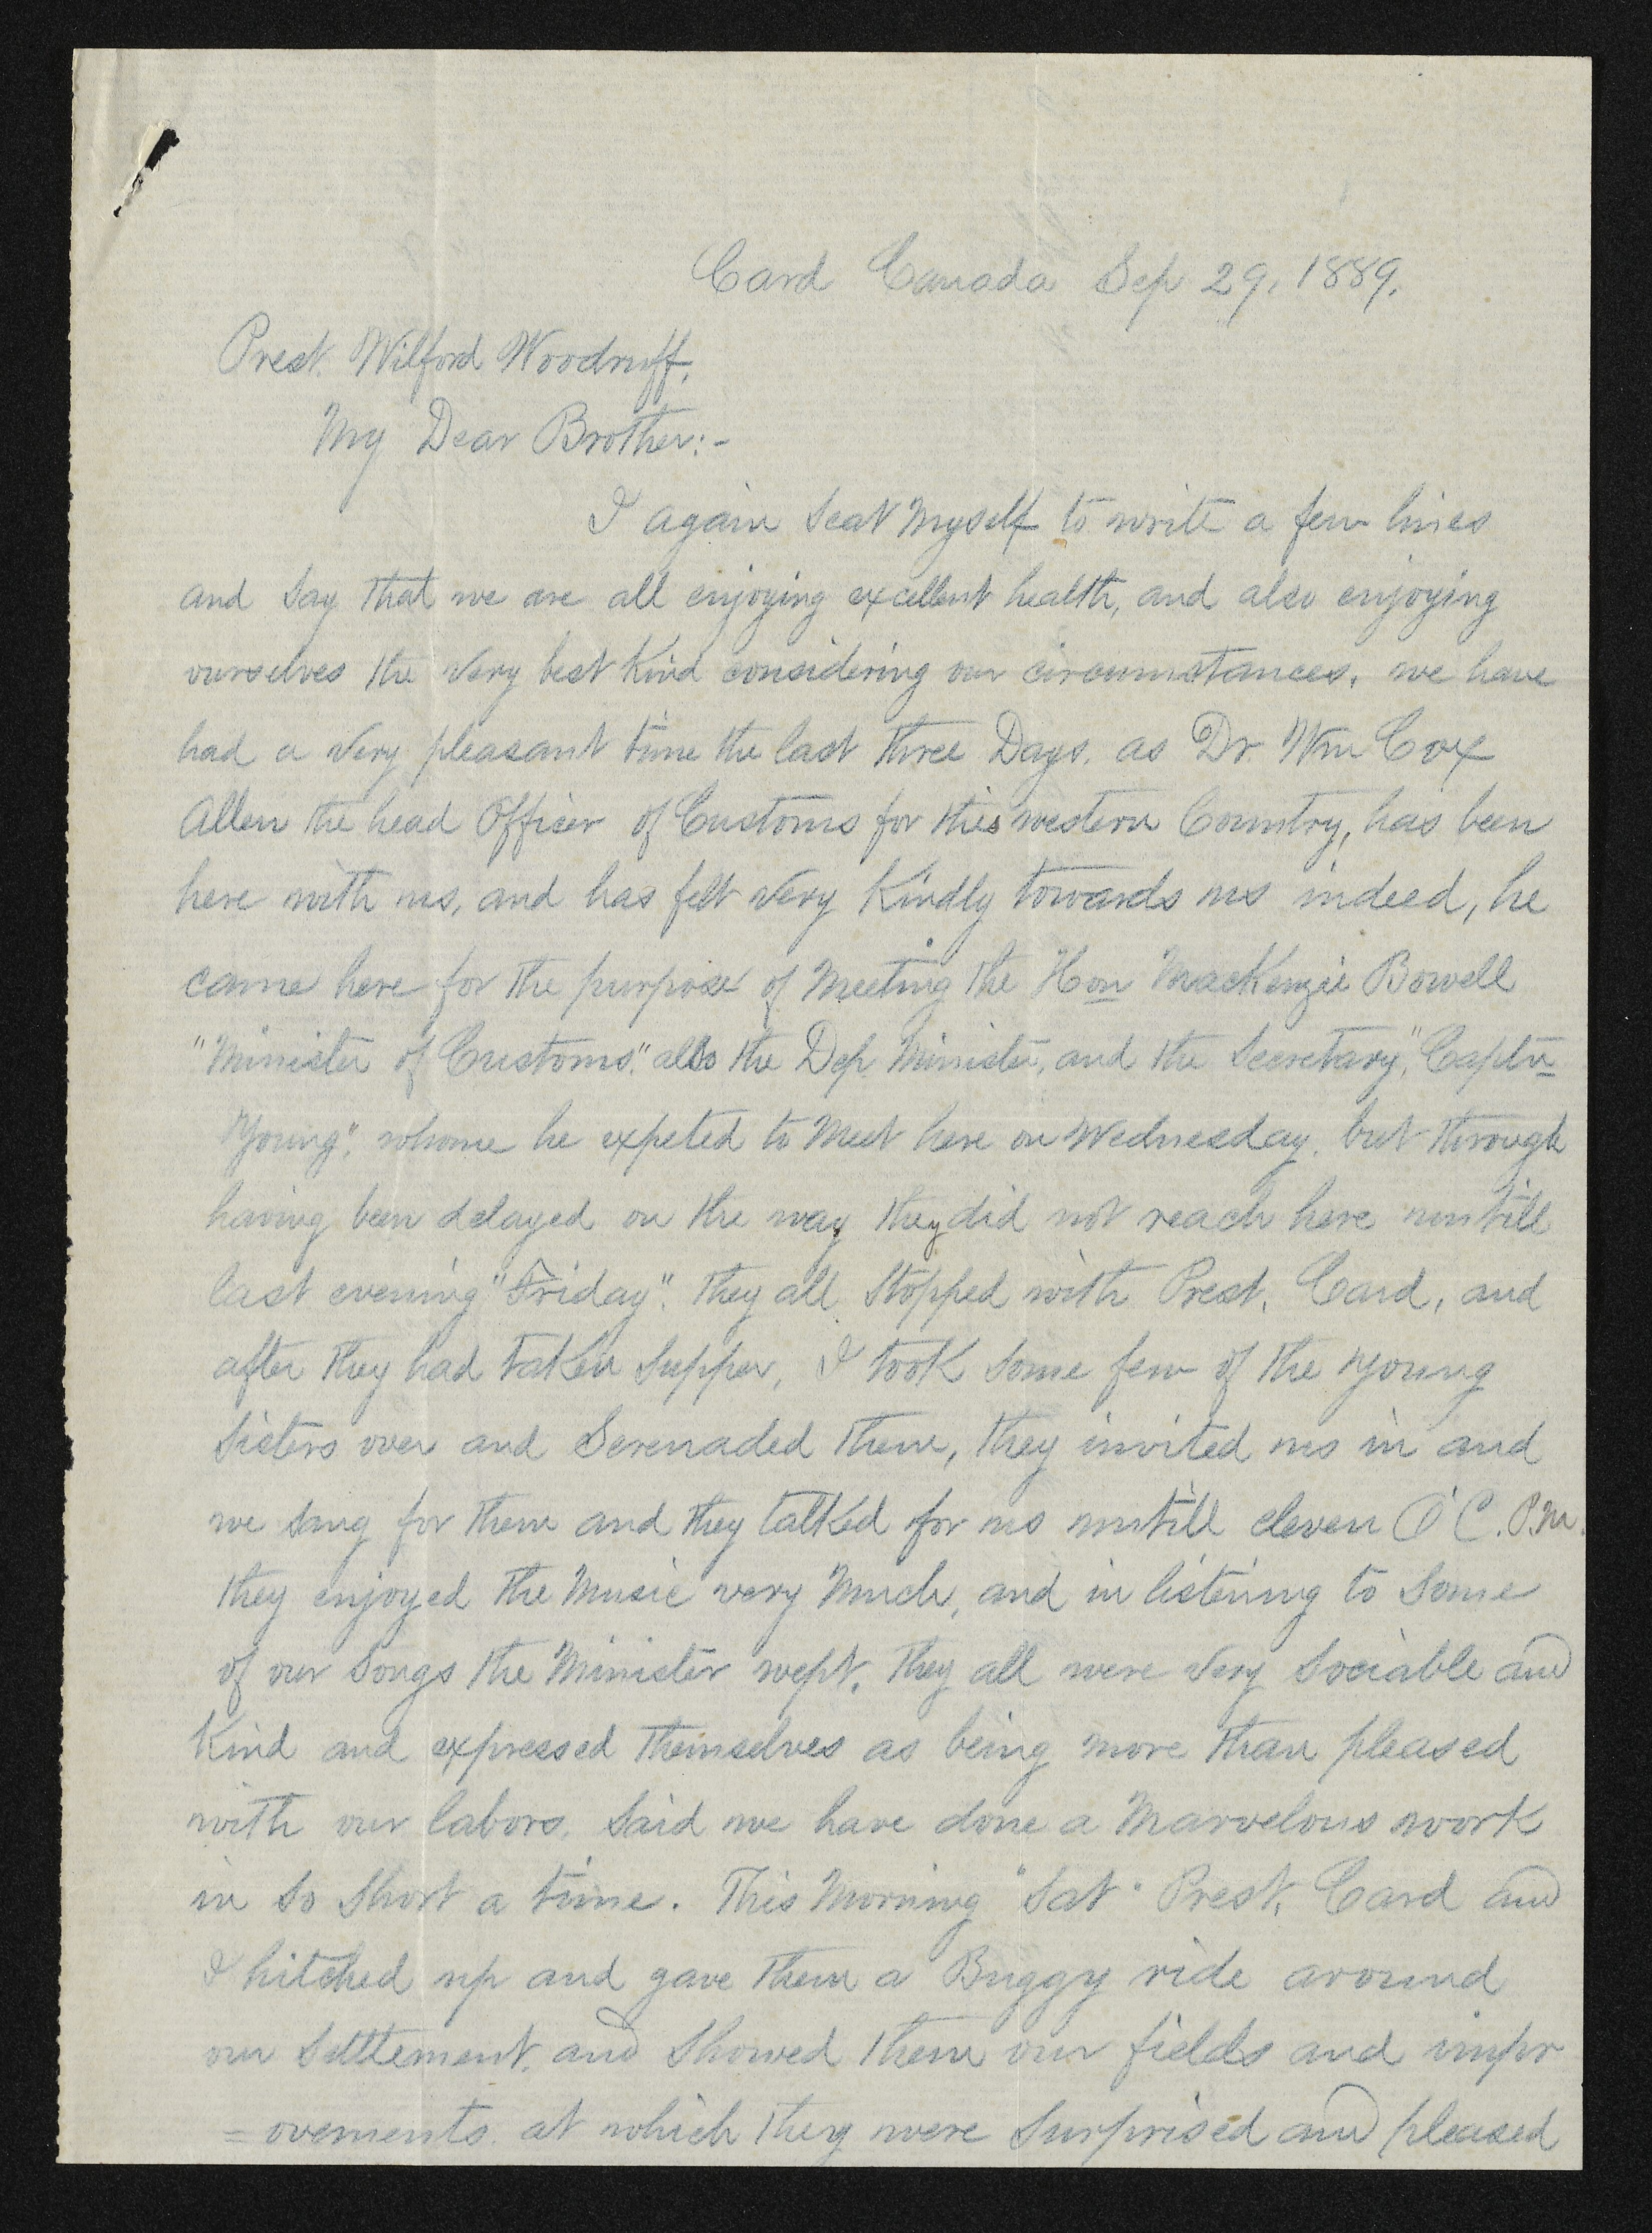 Card Canada Sep 29, 1889.
Prest. Wilford Woodruff,
My Dear Brother:-
I again seat Myself to write a few lines
and say that we are all enjoying excellent health, and also enjoying
ourselves the very best kind considering our circumstances. we have
had a very pleasant time the last three Days. as Dr. Wm Cox
Allen the head Officer of Customs for this western Country, has been
here with us, and has felt very kindly towards us indeed, he
came here for the purpose of Meeting the Hon MacKenzie Bowell
"Minister of Customs." also the Dep Minister, and the Secretary," Captn
Young". whome he expeted to Meet here on Wednesday. but through
having been delayed on the way they did not reach here untill
last evening "Friday". they all stopped with Prest. Card, and
after they had taken supper, I took some few of the young
Sisters over and Serenaded them, they invited us in and
we sang for them and they talked for us untill eleven O'C. P.M.
they enjoyed the Music very Much, and in listening to some
of our songs the Minister wept. they all were very sociable and
kind and expressed themselves as being more than pleased
with our labors. said we have done a Marvelous work
in so short a time. This Morning "Sat" Prest. Card and
I hitched up and gave them a Buggy ride around
our settlement, and showed them our fields and impr
=ovements. at which they were surprised and pleased